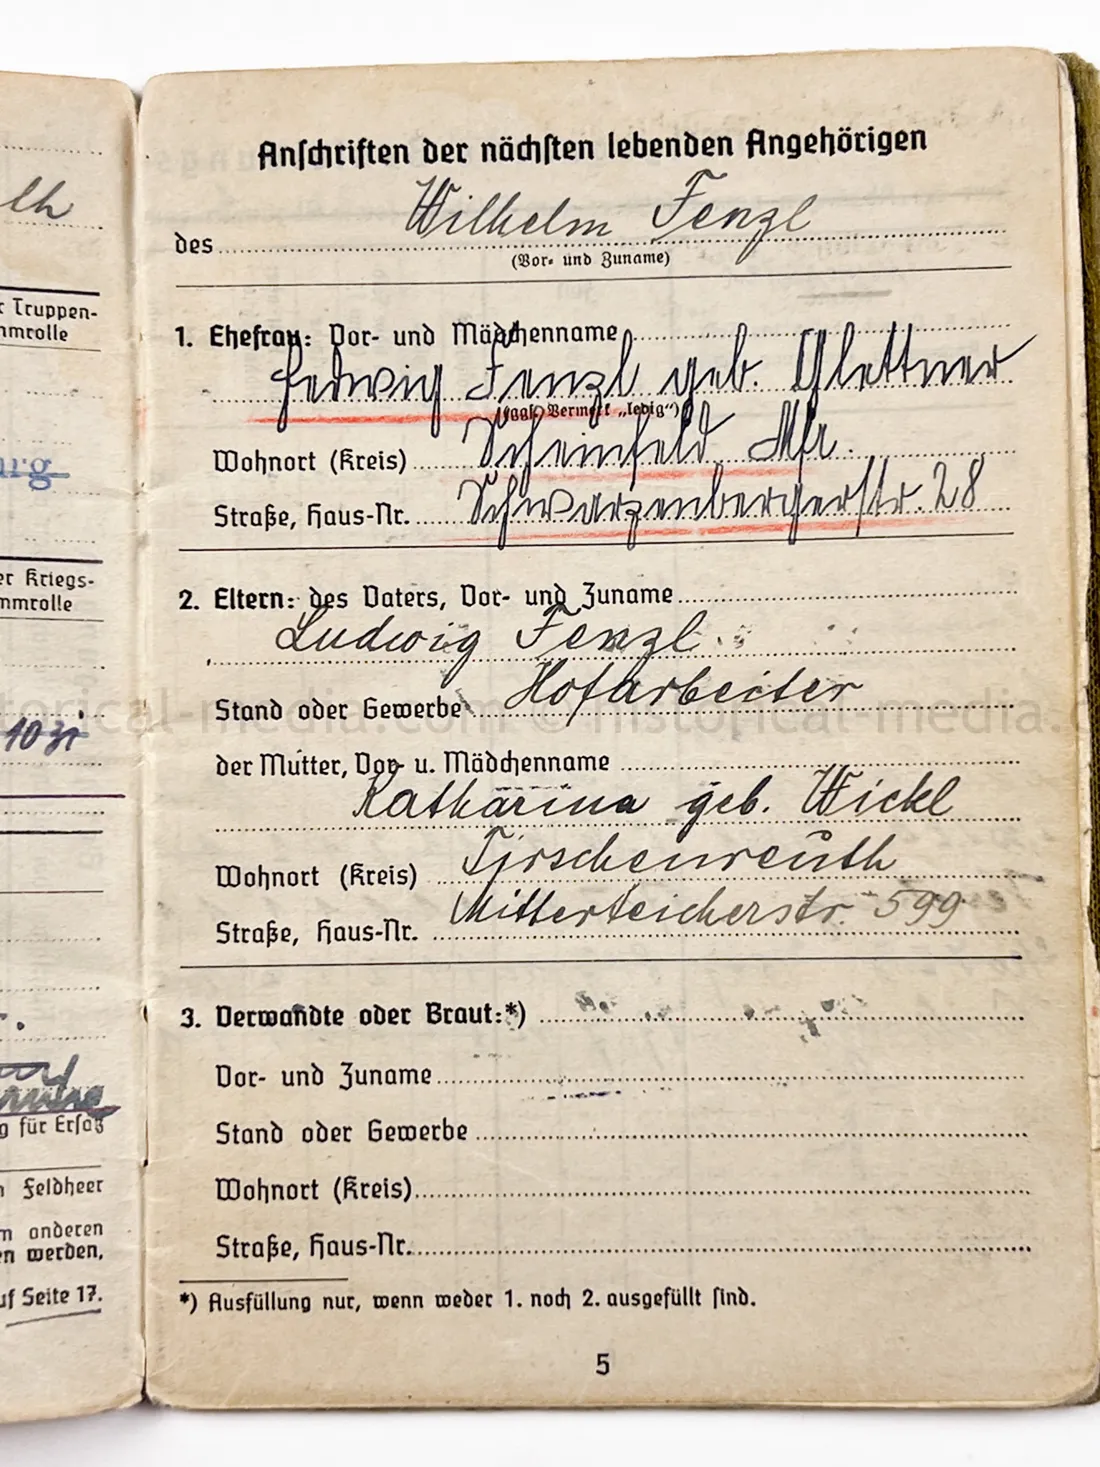 lh
r Truppen-
mrolle
urg
er Kriegs-
mmrolle
10
g für Ersatz
Feldheer
m anderen
en werden,
uf Seite 17.
Anschriften der nächsten lebenden Angehörigen
des Wilhelm Fenzl
(Vor- und Zuname)
1. Ehefrau: Vor- und Mädchenname
Hedwig Fenzl geb. Glettner
(ggf. Vermerk „ledig“)
Wohnort (Kreis) Scheinfeld Mfr.
Straße, Haus-Nr. Schwarzenbergerstr. 28
2. Eltern: des Vaters, Vor- und Zuname
Ludwig Fenzl
Stand oder Gewerbe Hofarbeiter
der Mutter, Vor- u. Mädchenname
Katharina geb. Wickl
Wohnort (Kreis) Tirschenreuth
Straße, Haus-Nr. Mitterteicherstr. 599
3. Verwandte oder Braut:*)
Vor- und Zuname
Stand oder Gewerbe
Wohnort (Kreis)
Straße, Haus-Nr.
*) Ausfüllung nur, wenn weder 1. noch 2. ausgefüllt sind.
5
torical-media.com © historical-media.c